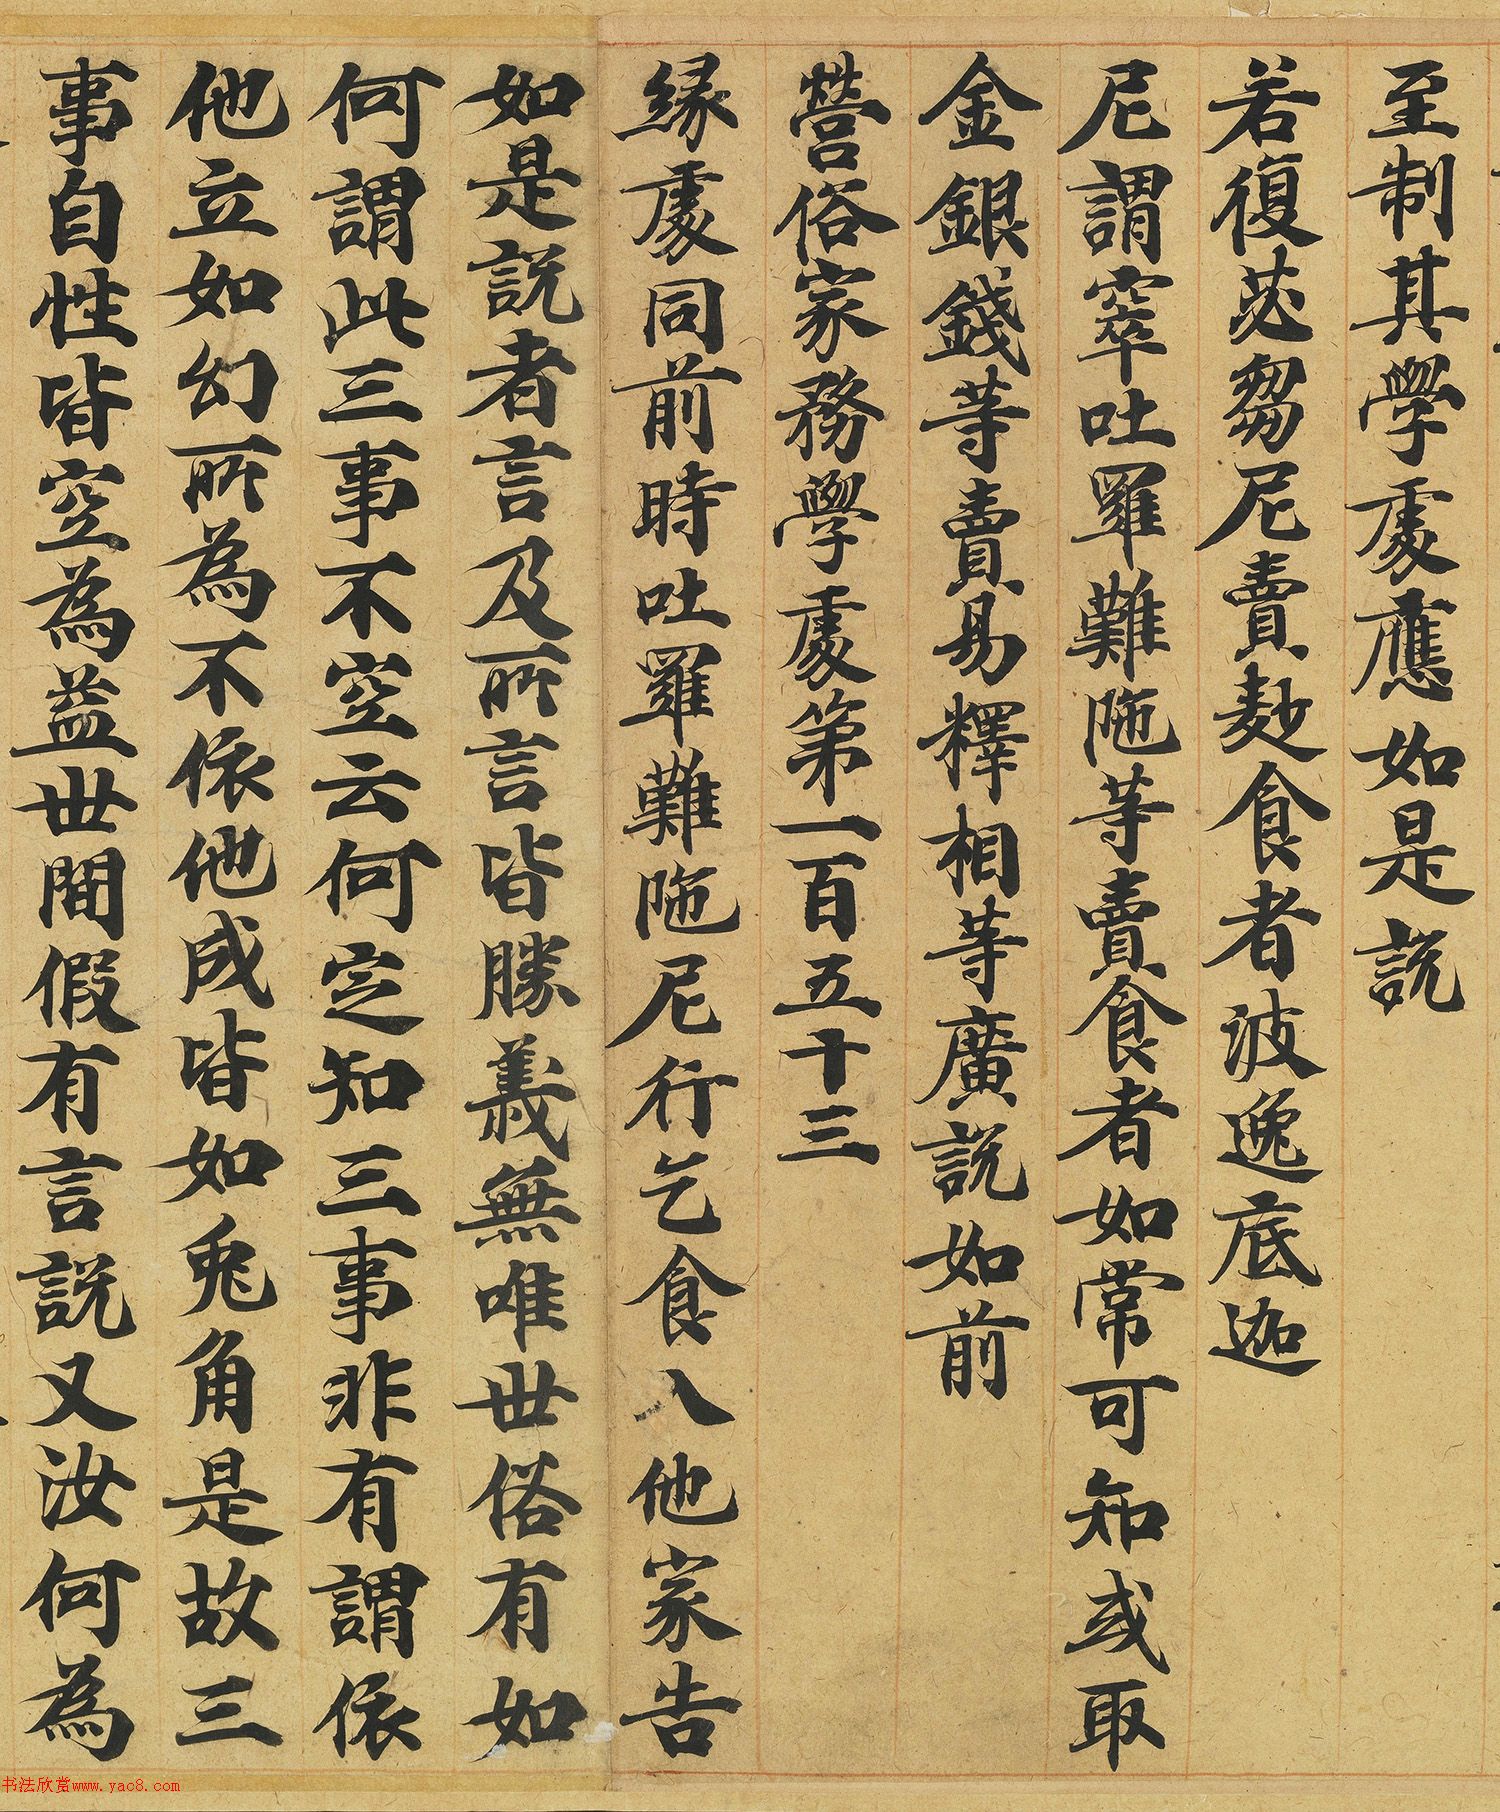 至制其學處應如是說
若復苾芻尼賣麨食者波逸底迦
尼謂窣吐羅難陁等賣食者如常可知或取
金銀錢等賣易釋相等廣說如前
營俗家務學處第一百五十三
緣處同前時吐羅難陁尼行乞食入他家告
如是說者言及所言皆勝義無唯世俗有如
何謂此三事不空云何定知三事非有謂依
他立如幻所為不依他成皆如兎角是故三
事自性皆空為益世間假有言說又汝何為
书法欣赏www.yac8.com